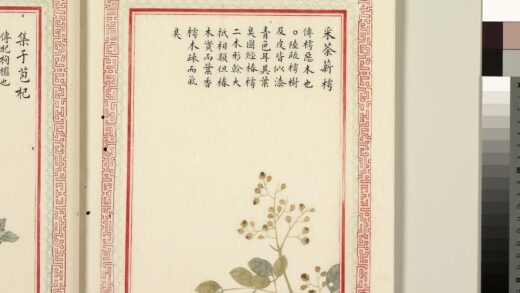 采荼薪樗
傳樗惡木也
。陸疏樗樹
及皮皆似漆
青色耳其葉
臭圖經椿樗
二木形榦大
抵相類但椿
木實而葉香
樗木疎而氣
臭
集于苞杞
傳杞枸檵也